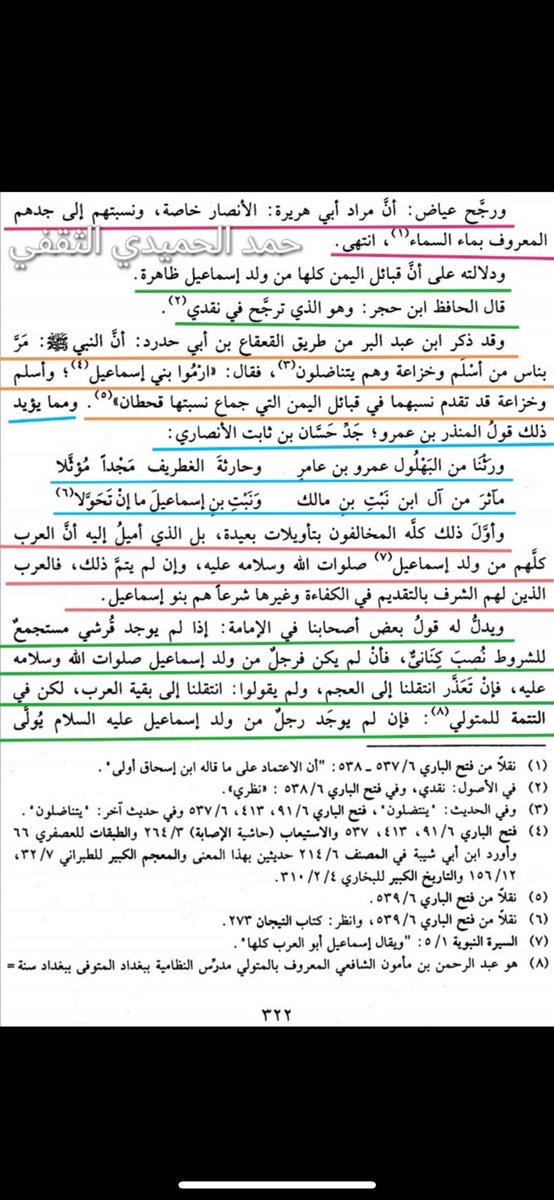 ورجَّح عياض: أنَّ مراد أبي هريرة: الأنصار خاصة، ونسبتهم إلى جدهم
المعروف بماء السماء(١)، انتهى.
حمد الحميدي الثقفي
ودلالته على أنَّ قبائل اليمن كلها من ولد إسماعيل ظاهرة.
قال الحافظ ابن حجر: وهو الذي ترجَّح في نقدي(٢).
وقد ذكر ابن عبد البر من طريق القعقاع بن أبي حدرد: أنَّ النبي ﷺ: مَرَّ
بناس من أسْلَم وخزاعة وهم يتناضلون(٣)، فقال: «ارْمُوا بني إسماعيل(٤)؛ وأسلم
وخزاعة قد تقدم نسبهما في قبائل اليمن التي جماع نسبتها قحطان»(٥). ومما يؤيد
ذلك قولُ المنذر بن عمرو؛ جَدِّ حَسَّان بن ثابت الأنصاري:
ورَثْنَا من البَهْلُول عمرو بن عامرٍ وحارثةَ الغطريف مَجْداً مُؤثَّلا
مآثرَ من آل ابن نَبْتِ بنِ مالك وَنَبْتِ بنِ إسماعيلَ ما إنْ تَحَوَّلا(٦)
وأوَّلَ ذلك كلَّه المخالفون بتأويلات بعيدة، بل الذي أميلُ إليه أنَّ العرب
كلَّهم من ولد إسماعيل(٧) صلوات الله وسلامه عليه، وإن لم يتمَّ ذلك، فالعرب
الذين لهم الشرف بالتقديم في الكفاءة وغيرها شرعاً هم بنو إسماعيل.
ويدلُّ له قولُ بعض أصحابنا في الإمامة: إذا لم يوجد قُرشي مستجمعٌ
للشروط نُصبَ كِنَانيٌّ، فأنْ لم يكن فرجلٌ من ولد إسماعيل صلوات الله وسلامه
عليه، فإنْ تَعَذَّر انتقلنا إلى العجم، ولم يقولوا: انتقلنا إلى بقية العرب، لكن في
التتمة للمتولي(٨): فإن لم يوجَد رجلٌ من ولد إسماعيل عليه السلام يُولَّى
(١) نقلاً من فتح الباري ٥٣٧/٦ ـ ٥٣٨: "أن الاعتماد على ما قاله ابن إسحاق أولى".
(٢) في الأصول: نقدي، وفي فتح الباري ٥٣٨/٦: «نظري».
(٣) وفي الحديث: "ينتضلون"، فتح الباري ٩١/٦، ٤١٣، ٥٣٧/٦ وفي حديث آخر: "يتناضلون".
(٤) فتح الباري ٩١/٦، ٤١٣، ٥٣٧ والاستيعاب (حاشية الإصابة) ٢٦٤/٣ والطبقات للعصفري ٦٦
وأورد ابن أبي شيبة في المصنف ٢١٤/٦ حديثين بهذا المعنى والمعجم الكبير للطبراني ٣٢/٧،
١٥٦/١٢ والتاريخ الكبير للبخاري ٣١٠/٢/٤.
(٥) نقلاً من فتح الباري ٥٣٩/٦.
(٦) نقلاً من فتح الباري ٥٣٩/٦، وانظر: كتاب التيجان ٢٧٣.
(٧) السيرة النبوية ٥/١: "ويقال إسماعيل أبو العرب كلها".
(٨) هو عبد الرحمن بن مأمون الشافعي المعروف بالمتولي مدرِّس النظامية ببغداد المتوفى ببغداد سنة =
٣٢٢